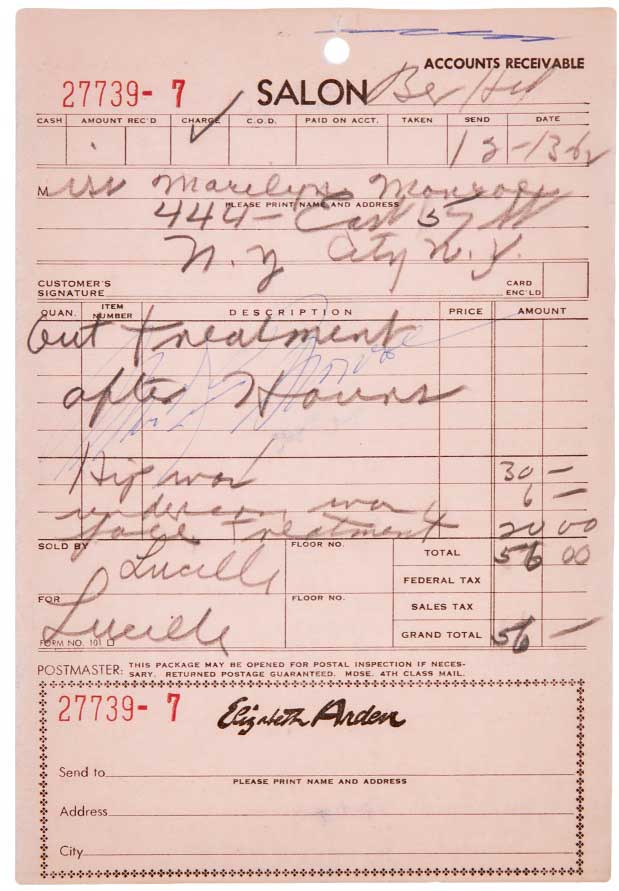 ACCOUNTS RECEIVABLE
27739- 7 SALON Bev Hil
CASH AMOUNT REC'D CHARGE C.O.D. PAID ON ACCT. TAKEN SEND DATE
✓ 12-13-62
M iss Marilyn Monroe
PLEASE PRINT NAME AND ADDRESS
444- East 57 St
N.Y City N.Y.
CUSTOMER'S SIGNATURE CARD ENC'LD
QUAN. ITEM NUMBER DESCRIPTION PRICE AMOUNT
out treatment
after Hours
Hip wax 30 —
underarm wax 6 —
face treatment 20 00
SOLD BY Lucille FLOOR NO. TOTAL 56 00
FEDERAL TAX
FOR Lucille FLOOR NO. SALES TAX
GRAND TOTAL 56 —
FORM NO. 101
POSTMASTER: THIS PACKAGE MAY BE OPENED FOR POSTAL INSPECTION IF NECES-
SARY. RETURNED POSTAGE GUARANTEED. MDSE. 4TH CLASS MAIL.
27739- 7 Elizabeth Arden
Send to
PLEASE PRINT NAME AND ADDRESS
Address
City